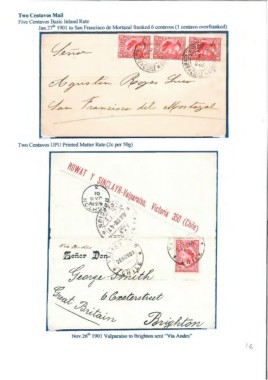 Two Centavos Mail
Two Centavos Basic Inland Rate
Jan.27th 1901 to San Francisco de Mostazal franked 6 centavos (1 centavo overfranked)
Señor
Agustin Rozas
San Francisco del Mostazal
Two Centavos UPU Printed Matter Rate (2c per 50g)
HOWAT Y SINCLAIR-Valparaiso, Victoria 350 (Chile)
via Andes
Señor Don
George Smith
6 Exeter Street
Brighton
Great Britain
Nov.26th 1901 Valparaiso to Brighton sent "Via Andes"